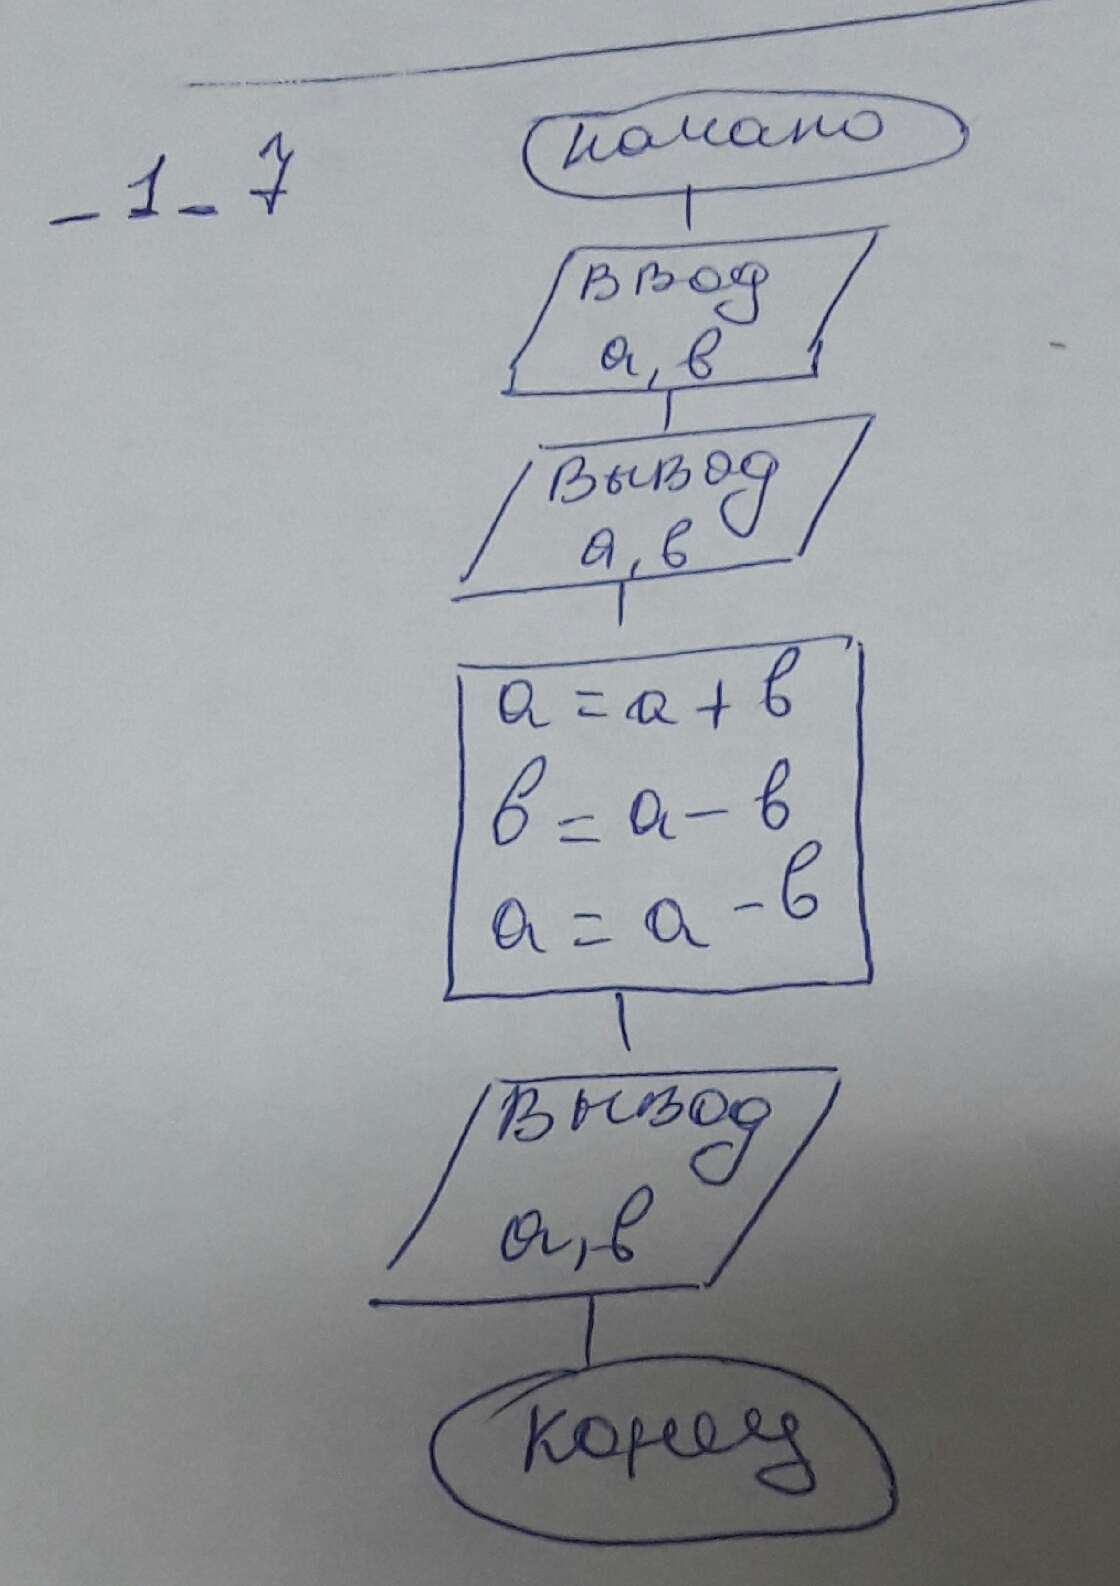 _1_7
начало
ввод
а, в
вывод
а, в
а = а + в
в = а - в
а = а - в
вывод
а, в
конец